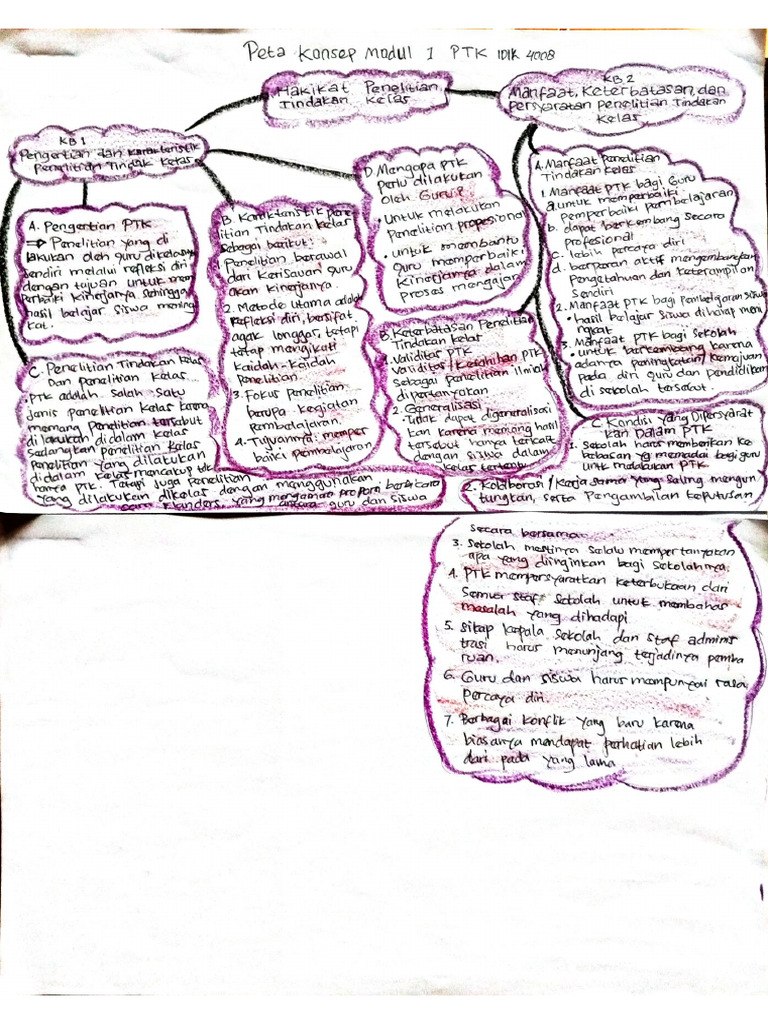 Peta Konsep Modul 1 PTK IDIK 4008
Hakikat Penelitian
Tindakan Kelas
KB 1
Pengertian dan Karakteristik
Penelitian Tindak Kelas
A. Pengertian PTK
Penelitian yang di
lakukan oleh guru dikelasnya
sendiri melalui refleksi diri
dengan tujuan untuk mem
perbaiki Kinerjanya sehingga
hasil belajar siswa mening
kat.
B. Karaktaristik pene
litian Tindakan kelas
sebagai berikut:
1. Penelitian berawal
dari Kerisauan guru
akan Kinerjanya.
2. Metode utama adalah
Refleksi diri, bersifat
agak longgar, tetapi
tetap mengikuti
Kaidah-Kaidah
penelitian
3. Fokus Penelitian
berupa kegiatan
pembelajaran.
4. Tujuannya: memper
baiki pembelajaran
C. Penelitian Tindakan Kelas
Dan penelitian kelas
PTK adalah Salah Satu
Janis penelitian kelas karena
memang Penelitian tersebut
di lakukan didalam kelas
Sedangkan penelitian kelas
Penelitian yang dilakukan
didalam kelas mencakup tdk
hanya PTK. Tatapi juga Penelitian
yang dilakukan dikelas dengan menggunakan
guru dan siswa
D. Mengapa PTK
perlu dilakukan
oleh Guru?
• Untuk melakukan
Penelitian propesional
• untuk membantu
Guru memperbaiki
Kinerjanya dalam
proses mengajar
KB 2
Manfaat, Keterbatasan, dan
persyaratan penelitian Tindakan
Kelas
A. Manfaat Penelitian
Tindakan Kelas
1. Manfaat PTK bagi Guru
a. untuk memperbaiki
pemperbaiki pembelajaran
b. dapat berkembang Secara
profesional
c. lebih percaya diri
d. berperan aktif mengembangkan
Pengetahuan dan keterampilan
Sendiri
2. Manfaat PTK bagi Pembelajaran siswa
Hasil belajar siswa diharap meni
ngkat
3. Manfaat PTK bagi Sekolah
• untuk berkembang karena
adanya peningkatan/kemajuan
pada diri guru dan pendidikan
di sekolah tersebut.
B. Keterbatasan Penelitian
Tindakan kelas
1. Validitas PTK
Validitas/Kesalahan PTK
Sebagai penelitian Ilmiah
di pertanyakan
2. Generalisasi
Tidak dapat digeneralisasi
kan karena memang hasil
tersebut hanya terkait
dengan siswa dalam
kelas tertentu
C. Kondisi yang Dipersyarat
kan Dalam PTK
1. Sekolah harus memberikan ke
bebasan yg memadai bagi guru
untuk melakukan PTK
2. Kolaborasi/Kerja Sama yang saling mengun
tungkan, serta Pengambilan keputusan
Secara bersama.
3. Sekolah mestinya Selalu mempertanyakan
apa yang diinginkan bagi Sekolahnya.
4. PTK mempersyaratkan keterbukaan dari
Semua staf Sekolah untuk membahas
masalah yang dihadapi
5. Sikap kepala Sekolah dan staf adminis
trasi harus menunjang terjadinya pemba
ruan.
6. Guru dan siswa harus mampunyai rasa
percaya diri.
7. Berbagai konflik yang baru karena
biasanya mendapat perhatian lebih
dari pada yang lama